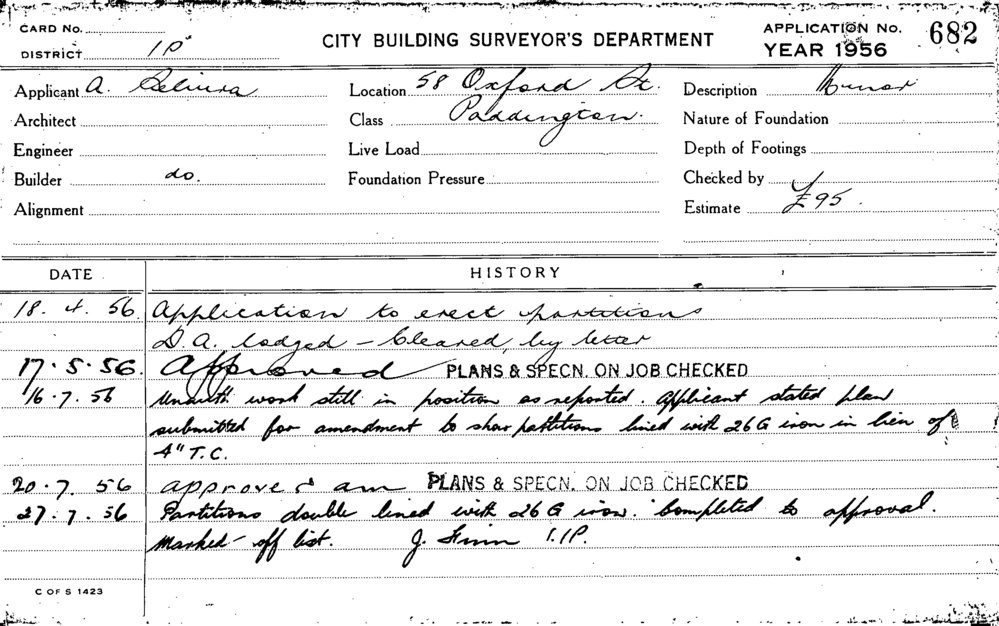 CARD No.
DISTRICT 1P
CITY BUILDING SURVEYOR'S DEPARTMENT
APPLICATION No. 682
YEAR 1956
Applicant A.
Location 58 Oxford St.
Description Minor
Architect
Class Paddington.
Nature of Foundation
Engineer
Live Load
Depth of Footings
Builder do.
Foundation Pressure
Checked by
Alignment
Estimate £95.
DATE
HISTORY
18. 4. 56 Application to erect partitions
D.A. lodged - Cleared, by letter
17.5.56. Approved PLANS & SPECN. ON JOB CHECKED
16.7.56 Unauth work still in position as reported. Applicant stated plan
submitted for amendment to show partitions lined with 26G iron in lieu of
4" T.C.
20.7.56 approved am PLANS & SPECN. ON JOB CHECKED
27.7.56 Partitions double lined with 26G iron. Completed to approval.
Marked-off list. J. 1.1P.
C OF S 1423